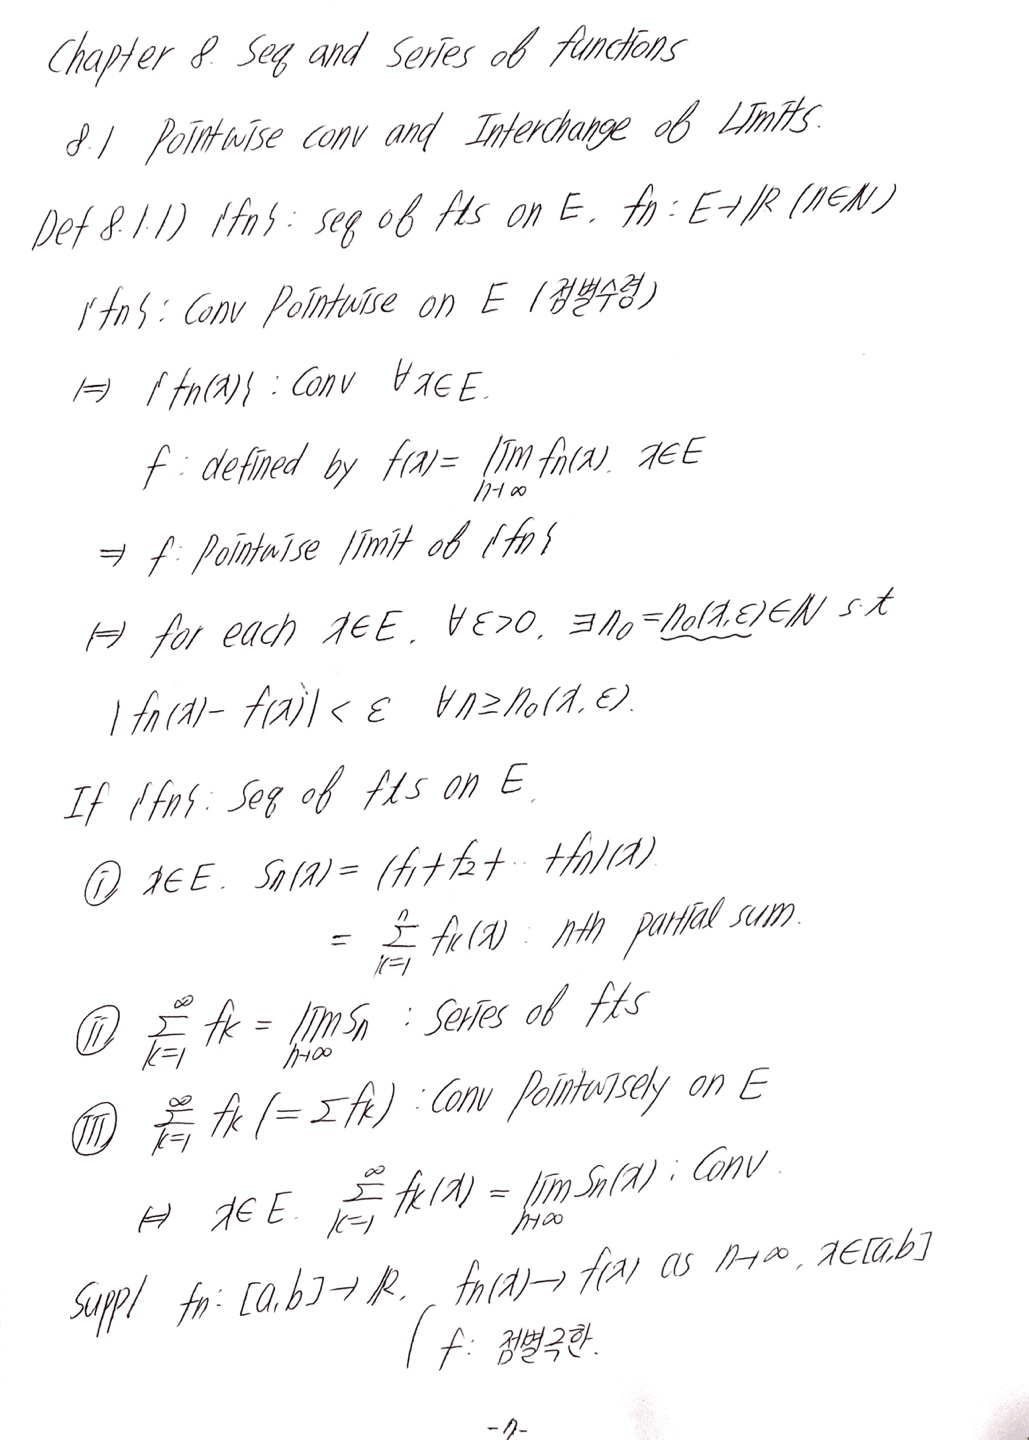 Chapter 8. Seq and Series of functions
8.1 Pointwise conv and Interchange of Limits.
Def 8.1.1) {fn}: seq of fts on E. fn: E→ℝ (n∈ℕ)
{fn}: Conv Pointwise on E (점별수렴)
⟺ {fn(x)}: Conv ∀x∈E.
f: defined by f(x)= lim_{n→∞} fn(x). x∈E
⇒ f: Pointwise limit of {fn}
⟺ for each x∈E, ∀ε>0, ∃n₀=n₀(x,ε)∈ℕ s.t
|fn(x)-f(x)|<ε ∀n≥n₀(x,ε).
If {fn}: Seq of fts on E.
ⓘ x∈E. Sn(x)= (f₁+f₂+…+fn)(x)
= Σ_{k=1}^{n} fk(x): nth partial sum.
ⅱ Σ_{k=1}^{∞} fk = lim_{n→∞} Sn : Series of fts
Ⅲ Σ_{k=1}^{∞} fk (=Σfk): Conv Pointwisely on E
⟺ x∈E. Σ_{k=1}^{∞} fk(x) = lim_{n→∞} Sn(x): Conv.
Suppl fn: [a,b]→ℝ, fn(x)→f(x) as n→∞, x∈[a,b]
( f: 점별극한.
-7-